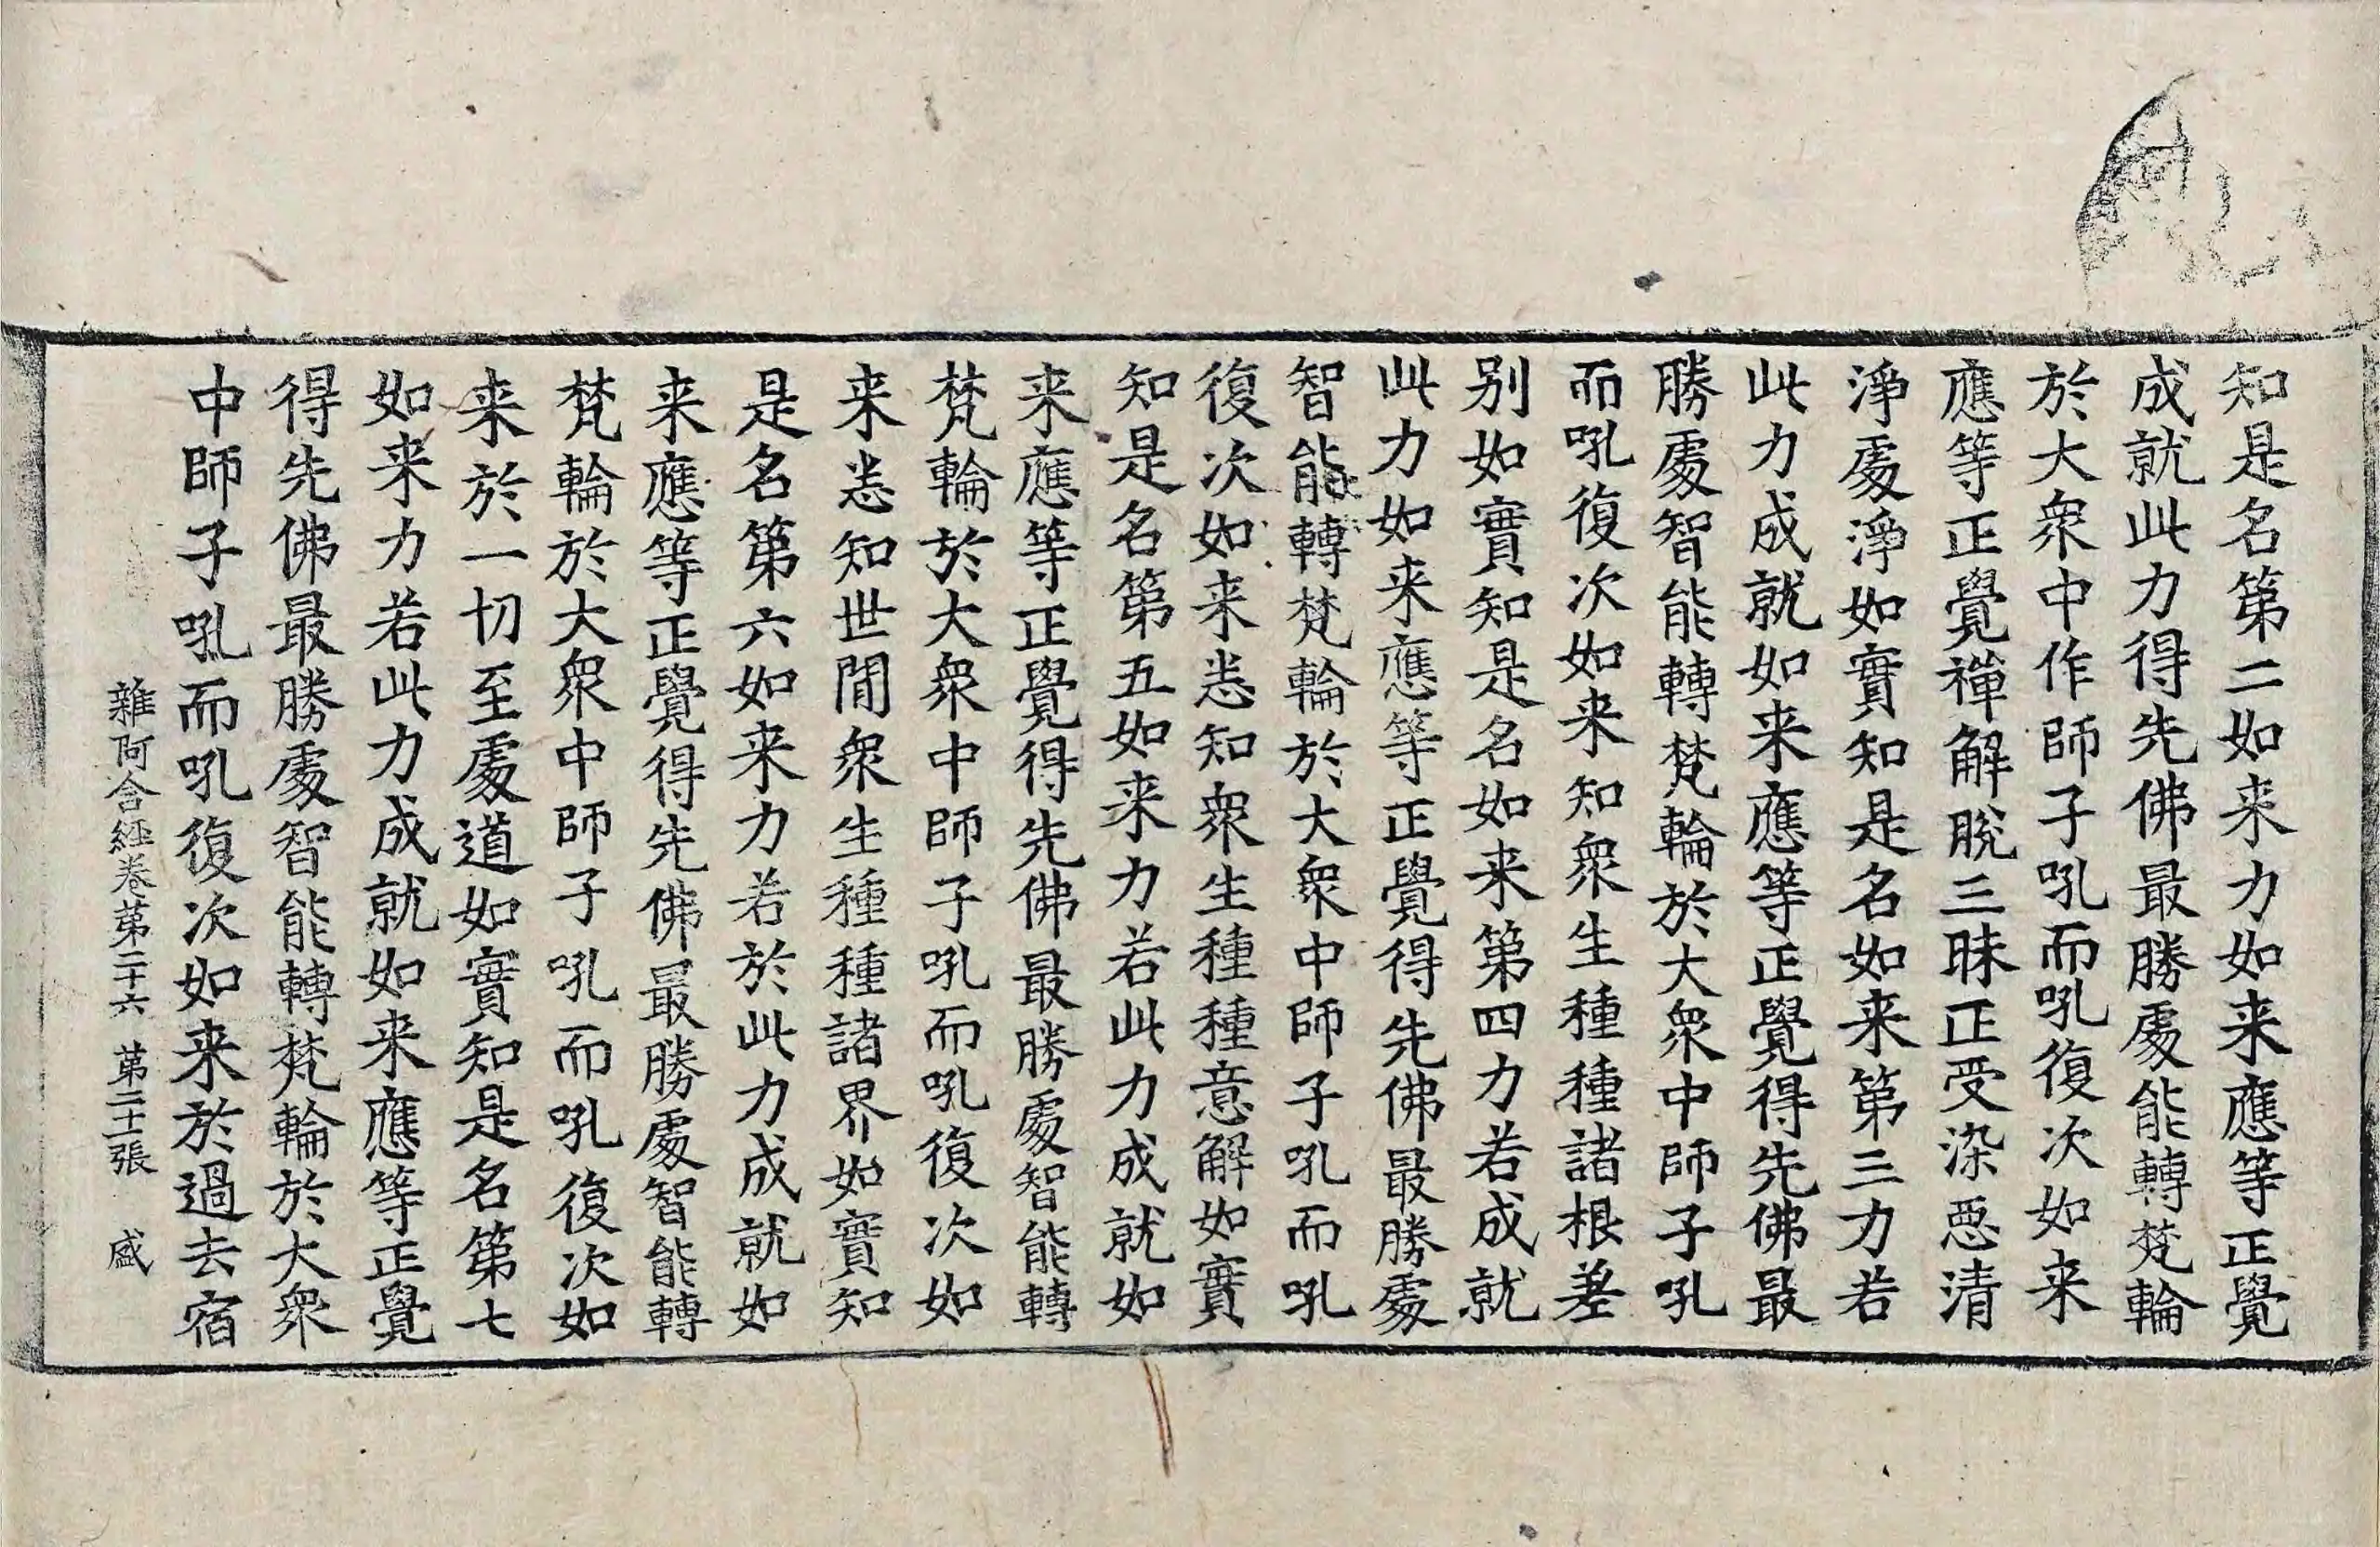 知是名第二如来力如来應等正覺
成就此力得先佛最勝處能轉梵輪
於大衆中作師子吼而吼復次如来
應等正覺禪解脫三昧正受染惡清
淨處淨如實知是名如来第三力若
此力成就如来應等正覺得先佛最
勝處智能轉梵輪於大衆中師子吼
而吼復次如来知衆生種種諸根差
别如實知是名如来第四力若成就
此力如来應等正覺得先佛最勝處
智能轉梵輪於大衆中師子吼而吼
復次如来悉知衆生種種意解如實
知是名第五如来力若此力成就如
来應等正覺得先佛最勝處智能轉
梵輪於大衆中師子吼而吼復次如
来悉知世閒衆生種種諸界如實知
是名第六如来力若於此力成就如
来應等正覺得先佛最勝處智能轉
梵輪於大衆中師子吼而吼復次如
来於一切至處道如實知是名第七
如来力若此力成就如来應等正覺
得先佛最勝處智能轉梵輪於大衆
中師子吼而吼復次如来於過去宿
雜阿含經卷第二十六 第二十一張 盛